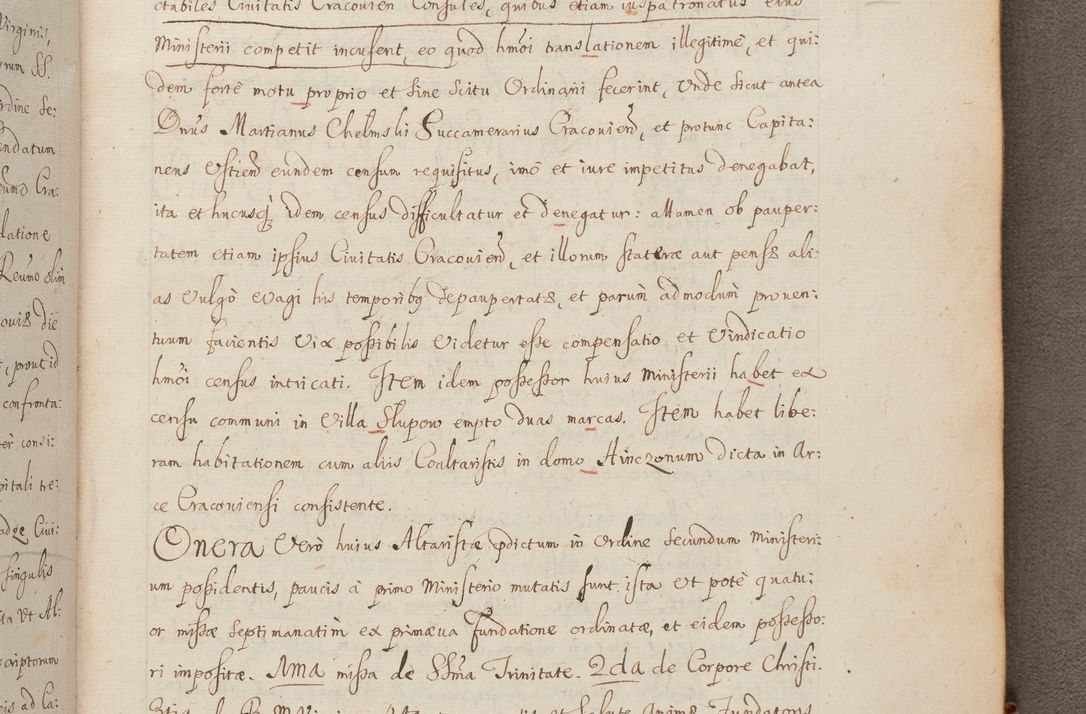 ctabiles Civitatis Cracovien Consules, quibus etiam iuspatronatus eius
Ministerii competit incusent, eo quod hmõi translationem illegitimè, et qui:
dem forrè motu proprio et sine scitu Ordinarii fecerint, Unde sicut antea
Dnus Martianus Chelmski Succamerarius Cracovien, et protunc Capita:
neus eundem censum requisitus, imò et iure impetitus denegabat,
ita et hucusq idem census difficultatur et denegatur: attamen ob pauper:
tatem etiam ipsius Civitatis Cracovien, et illorum stateræ aut pensæ ali:
as Vulgò Wagi his temporibus depaupertatæ, et parum admodum proven:
tuum facientis Vix possibilis Videtur esse compensatio et Vindicatio
hmõi census intricati. Item idem possessor huius Ministerii habet ex
censu communi in Villa Slupow empto duas marcas. Item habet libe:
ram habitationem cum aliis Coaltaristis in domo Hinczonum dicta in Ar:
ce Cracoviensi consistente.
Onera Verò huius Altaristæ pdictum in Ordine Secundum Ministeri:
um possidentis, paucis à primo Ministerio mutatis sunt ista Ut potè quatu:
or missæ Septimanatim ex primæva Fundatione ordinatæ, et eidem possesso:
ri impositæ. 1ma missa de SSma Trinitate. 2da de Corpore Christi.
Virginis,
rum SS.
rdine Se:
ndatum
Cra:
latione
Reumo olim
die
, prout id
confronta:
consi:
pitali tre:
Civi:
singulis
Ut Al:
scriptorum
ad Ca: